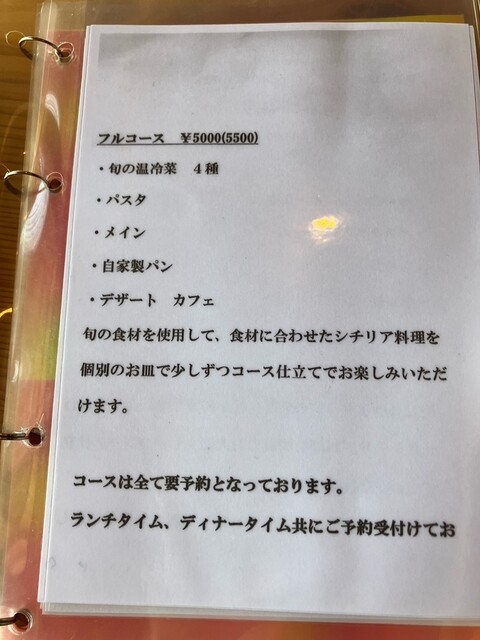 フルコース　￥5000(5500)
・旬の温冷菜　４種
・パスタ
・メイン
・自家製パン
・デザート　カフェ
旬の食材を使用して、食材に合わせたシチリア料理を
個別のお皿で少しずつコース仕立てでお楽しみいただ
けます。
コースは全て要予約となっております。
ランチタイム、ディナータイム共にご予約受付けてお